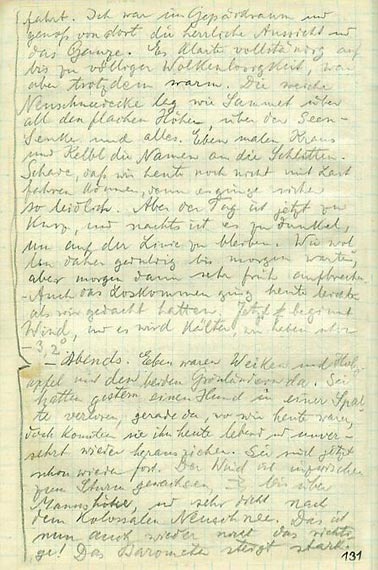 fahrt. Ich war im Gepäckraum und
genoß von dort die herrliche Aussicht und
das Ganze. Es klarte vollständig auf
bis zu völliger Wolkenlosigkeit, war
aber trotzdem warm. Die weiche
Neuschneedecke lag wie Sammet über
all den flachen Höhen, über der Seen-
Senke und alles. Eben malen Kraus
und Kelbl die Namen an die Schlitten.
Schade, daß wir heute noch nicht mit Last
fahren können, denn es ginge sicher
so leidlich. Aber der Tag ist jetzt zu
kurz, und nachts ist es zu dunkel,
um auf der Linie zu bleiben. Wir wol-
len daher geduldig bis morgen warten,
aber morgen dann sehr früh aufbrechen.
Auch das Loskommen ging heute
als wir gedacht hatten. Jetzt beginnt
Wind, und es wird kälter, wir haben schon
– 3,2°
– Abends. Eben waren Weiken und Holz-
apfel und den beiden Grönländern da. Sie
hatten gestern einen Hund in einer Spal-
te verloren, gerade da, wo wir heute waren,
doch konnten sie ihn heute lebend und unver-
sehrt wieder herausziehen. Sie sind jetzt
schon wieder fort. Der Wind ist inzwischen
zum Sturm gewachsen, bis über
Mannshöhe, und sehr dicht nach
dem kolossalen Neuschnee. Das ist
nun auch wieder nicht das richti-
ge! Das Barometer steigt stark.
131